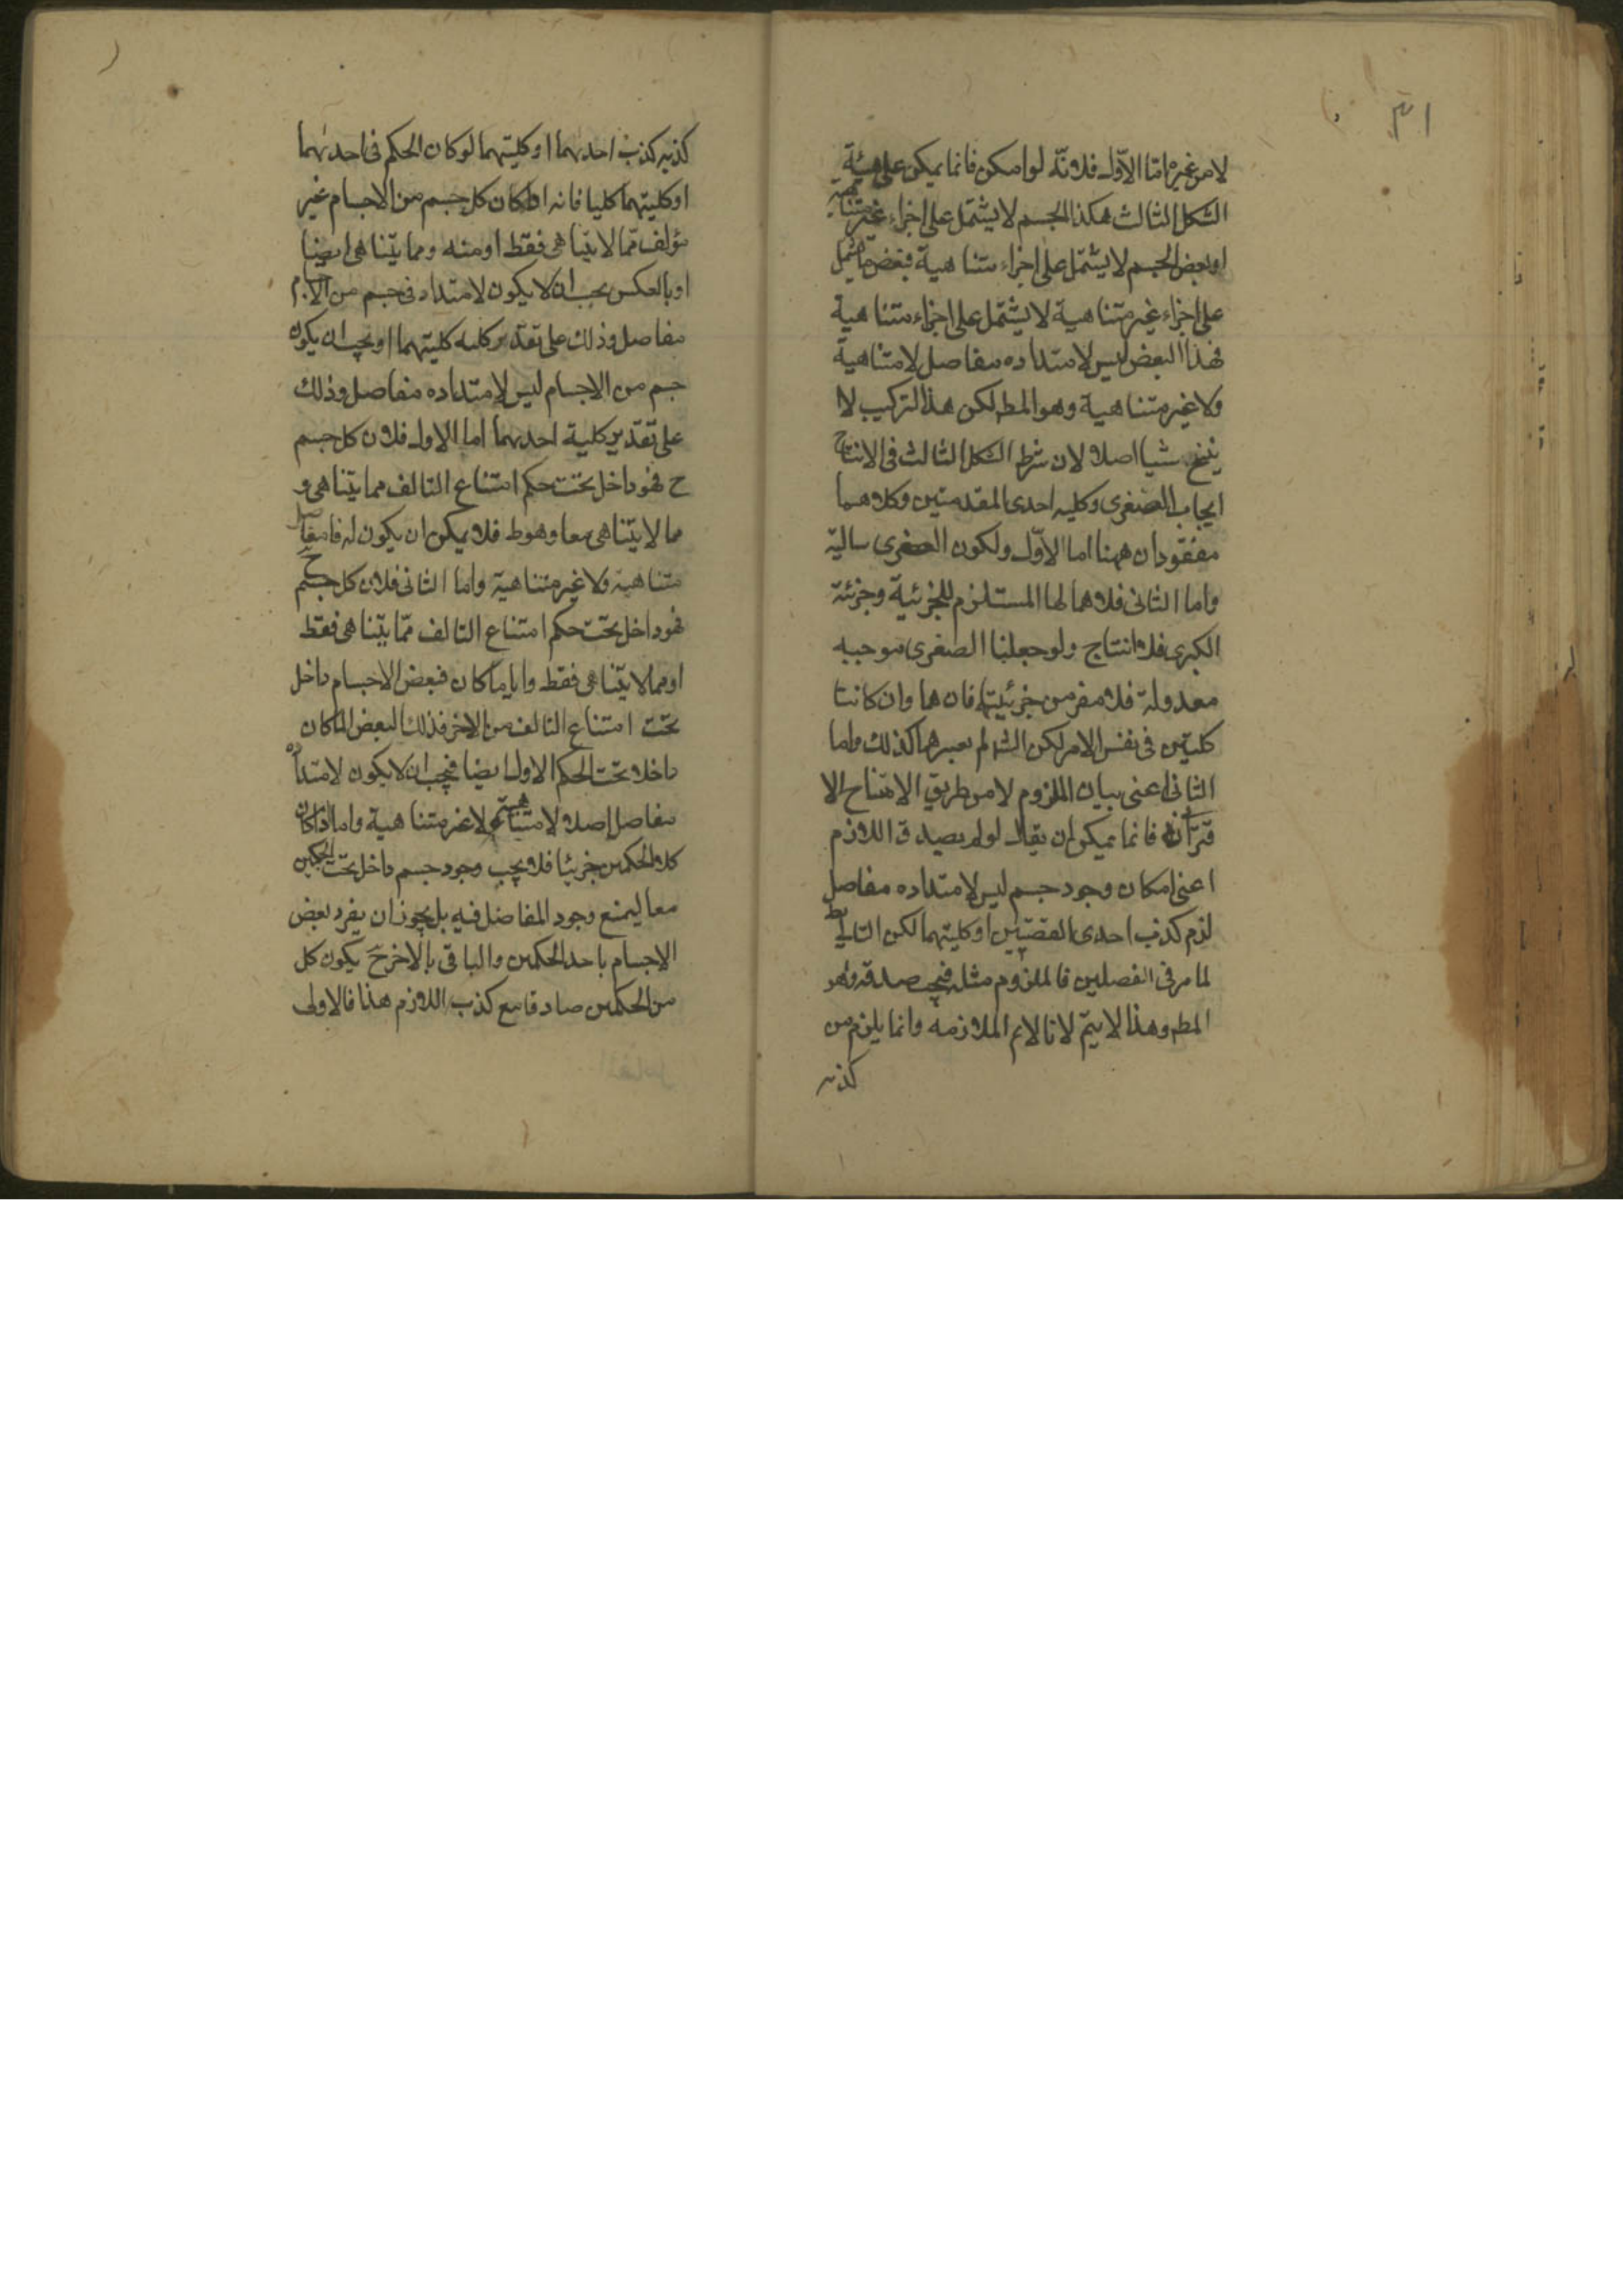 ٣١
لا من غيره اما الاول فلانه لو امكن فانما يمكن على هيئة
الشكل الثالث هكذا الجسم لا يشتمل على اجزاء غير متناهية
او بعض الجسم لا يشتمل على اجزاء متناهية فبعض ما يشتمل
على اجزاء غير متناهية لا يشتمل على اجزاء متناهية
فهذا البعض ليس لامتداده مفاصل لا متناهية
ولا غير متناهية وهو المط لكن هذا التركيب لا
ينتج شيا اصلا لان شرط الشكل الثالث فى الانتاج
ايجاب الصغرى وكليه احدى المقدمتين وكلاهما
مفقودان ههنا اما الاول ولكون الصغرى سالبة
واما الثانى فلاهمالها المستلزم للجزئية وجزئية
الكبرى فلا انتاج ولو جعلنا الصغرى موجبه
معدولة فلا مفر من جزئيتها فان ها وان كانتا
كليتين فى نفس الامر لكن الش لم يعبرهما كذلك واما
الثانى اعنى بيان الملزوم لا من طريق الانتاج الا
قترانى فانما يمكن ان يقال لو لم يصدق اللازم
اعنى امكان وجود جسم ليس لامتداده مفاصل
لزم كذب احدى القضيتين او كليتهما لكن التالى بط
لما مر فى الفصلين فالملزوم مثله فيجب صدقه وهو
المط وهذا لا يتم لانا لانم الملازمه وانما يلزم من
كذبه
كذبه كذب احدهما او كليتهما لو كان الحكم فى احدهما
او كليتهما كليا فانه اذا كان كل جسم من الاجسام غير
مؤلف مما لا يتناهى فقط او منه ومما يتناهى ايضا
او بالعكس يجب ان لا يكون لامتداد فى جسم من الاجسام
مفاصل وذلك على تقدير كليه كليتهما او يجب ان يكون
جسم من الاجسام ليس لامتداده مفاصل وذلك
على تقدير كلية احدهما اما الاول فلان كل جسم
ح فهو داخل تحت حكم امتناع التالف مما يتناهى و
مما لا يتناهى معا وهو ط فلا يمكن ان يكون له مفاصل
متناهية ولا غير متناهية واما الثانى فلان كل جسم ح
فهو داخل تحت حكم امتناع التالف مما يتناهى فقط
او مما لا يتناهى فقط واياما كان فبعض الاجسام داخل
تحت امتناع التالف من الاخر فذلك البعض لما كان
داخلا تحت الحكم الاول ايضا فيجب ان لا يكون لامتداده
مفاصل اصلا لا متناهية ولا غير متناهية واما اذا كان
كلا الحكمين جزئيا فلا يجب وجود جسم داخل تحت الحكمين
معا ليمنع وجود المفاصل فيه بل يجوز ان يفرد بعض
الاجسام باحد الحكمين والباقى بالاخر ح يكون كل
من الحكمين صادقا مع كذب اللازم هذا فالاولى